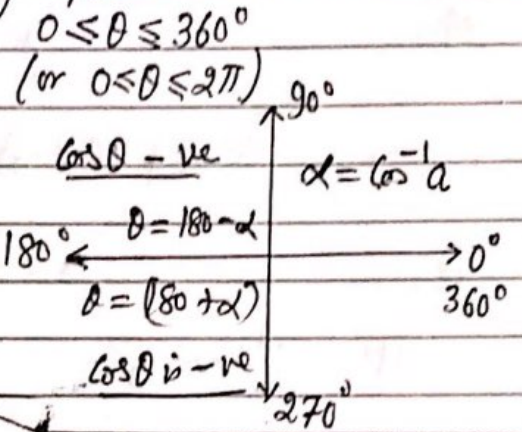 0 ≤ θ ≤ 360°
(or 0 ≤ θ ≤ 2π)
90°
Cosθ - ve
α = Cos⁻¹a
θ = 180 - α
180°
0°
θ = (180 + α)
360°
cosθ is - ve
270°